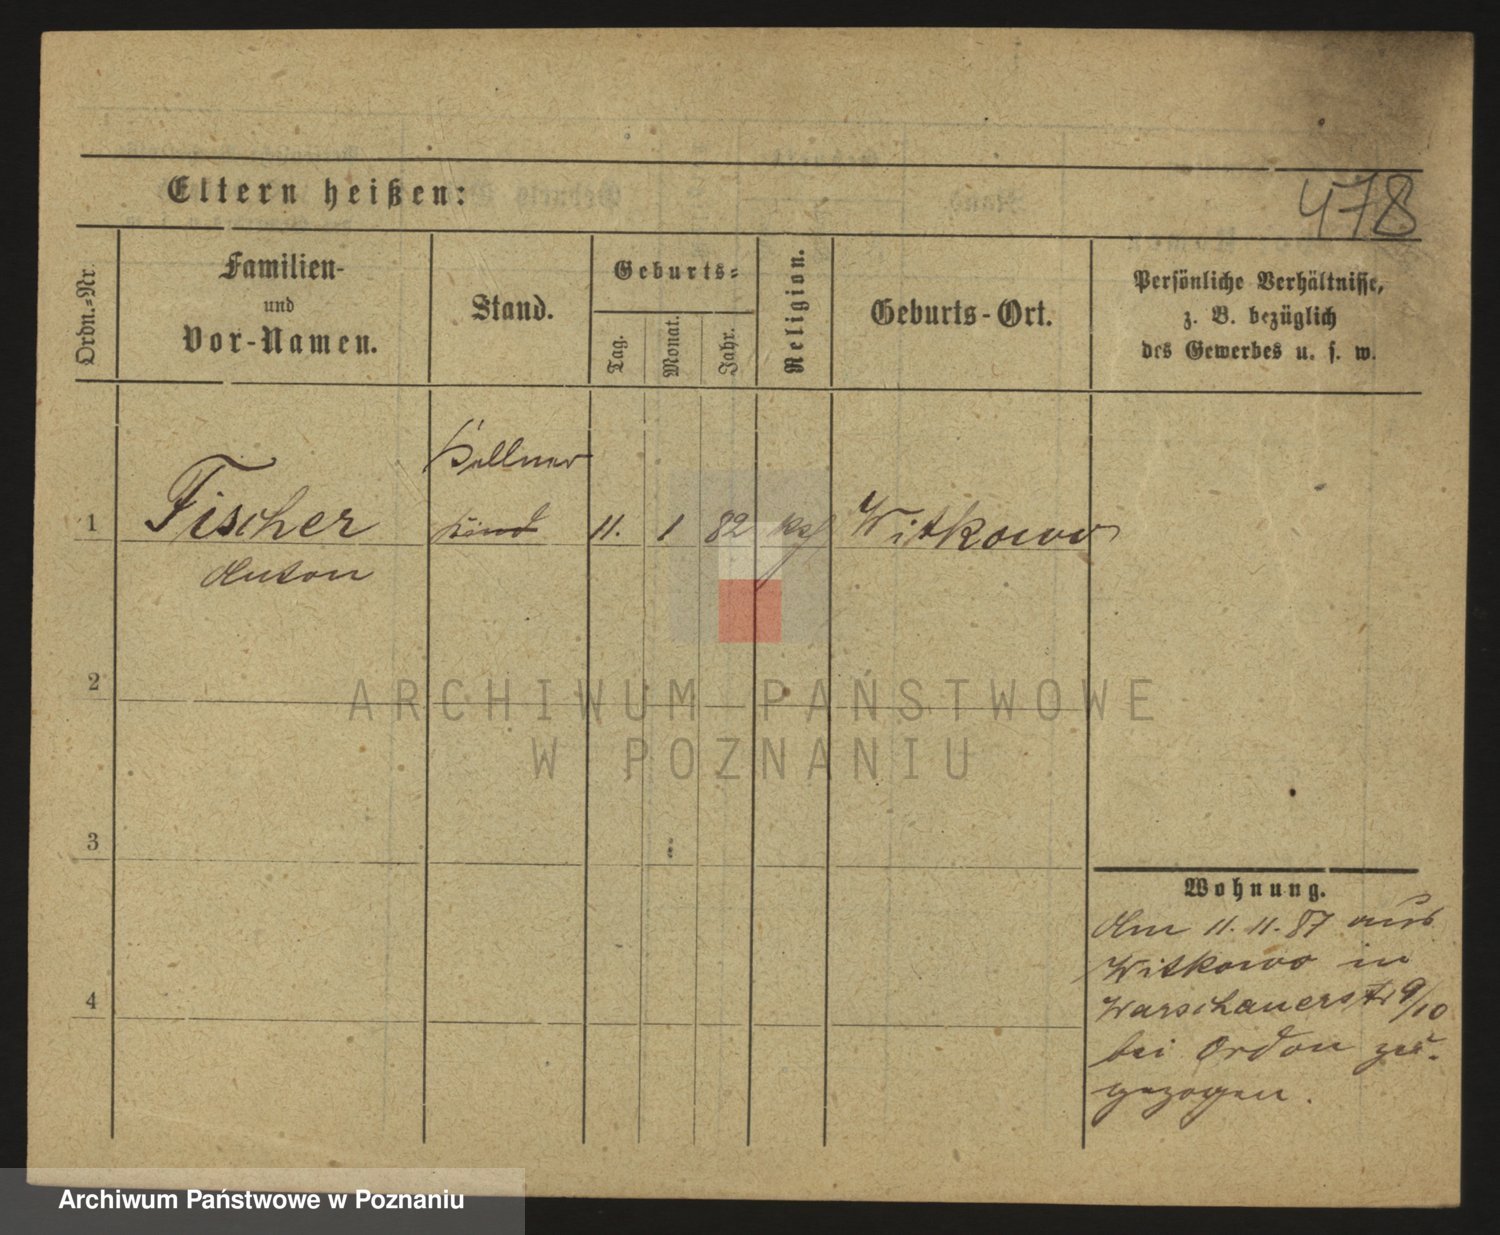 Eltern heißen:
478
Ordn.-Nr.
Familien-
und
Vor-Namen.
Stand.
Geburts-
Tag.
Monat.
Jahr.
Religion.
Geburts-Ort.
Persönliche Verhältnisse,
z. B. bezüglich
des Gewerbes u. s. w.
Kellner
1 Fischer Kind 11. 1 82 Witkowo
Anton
2
3
4
ARCHIWUM PAŃSTWOWE
W POZNANIU
Wohnung.
Am 11. 11. 87 aus
Witkowo in
Warschauerstr 9/10
bei Ordon zu-
gezogen.
Archiwum Państwowe w Poznaniu